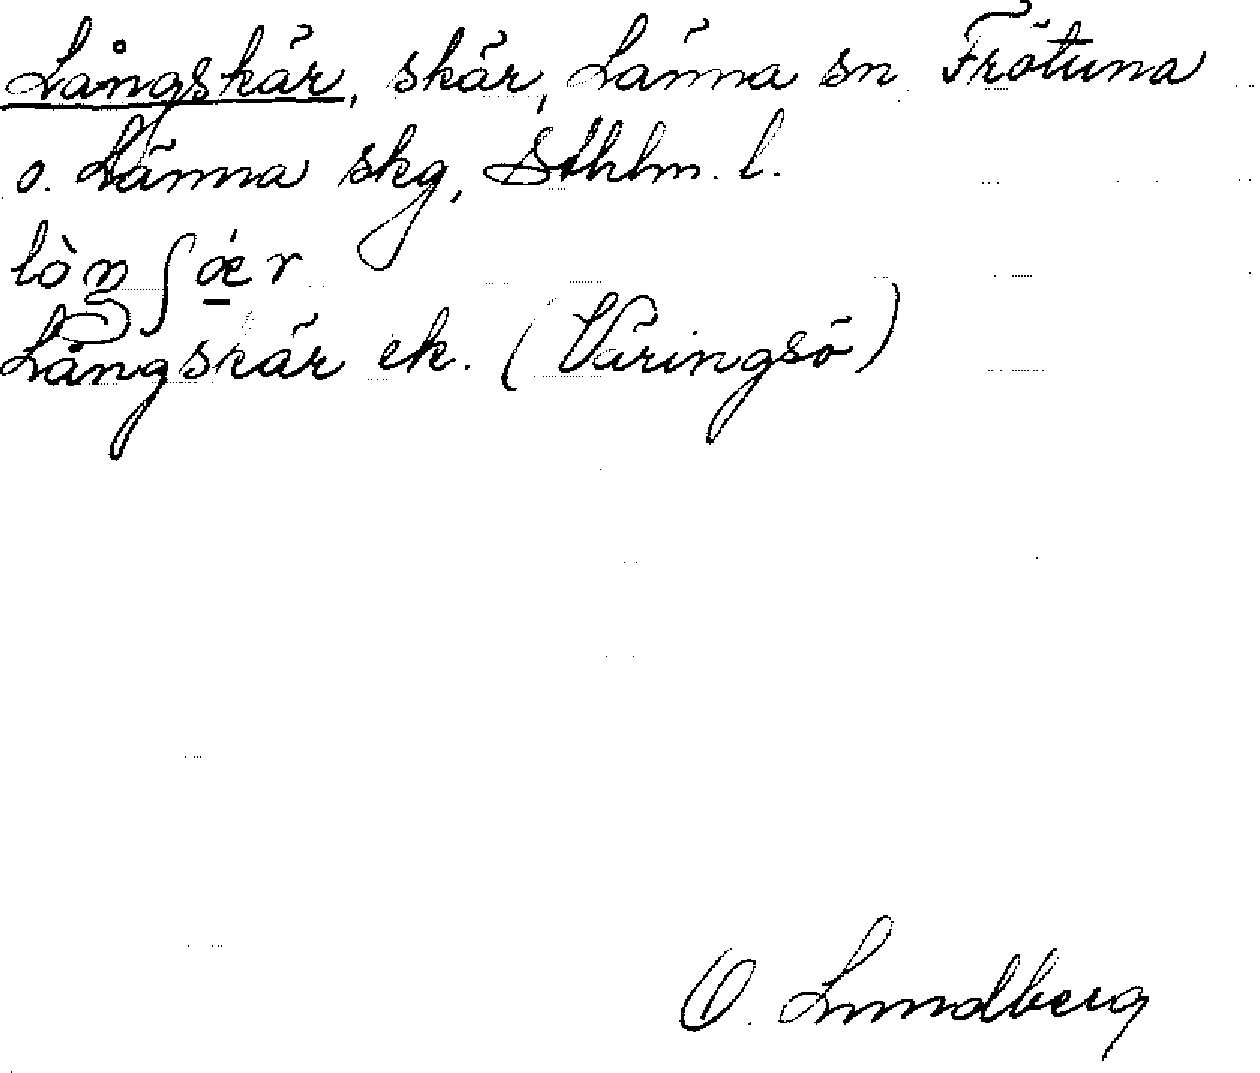 Långskär, skär, Länna sn Frötuna
o. Länna skg, Sthlm. l.
lòŋʃǽr
Långskär ek. (Väringsö)
O. Lundberg